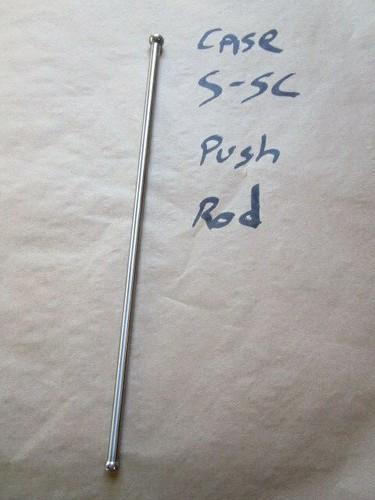 Case
S-SC
Push
Rod